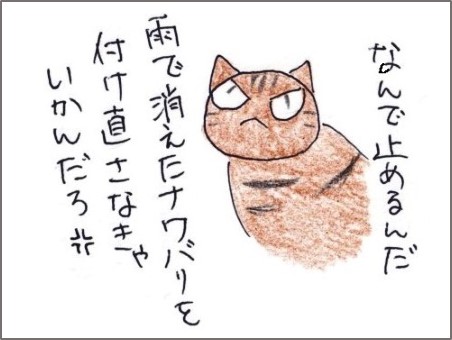 なんで止めるんだ
雨で消えたナワバリを
付け直さなきゃ
いかんだろ